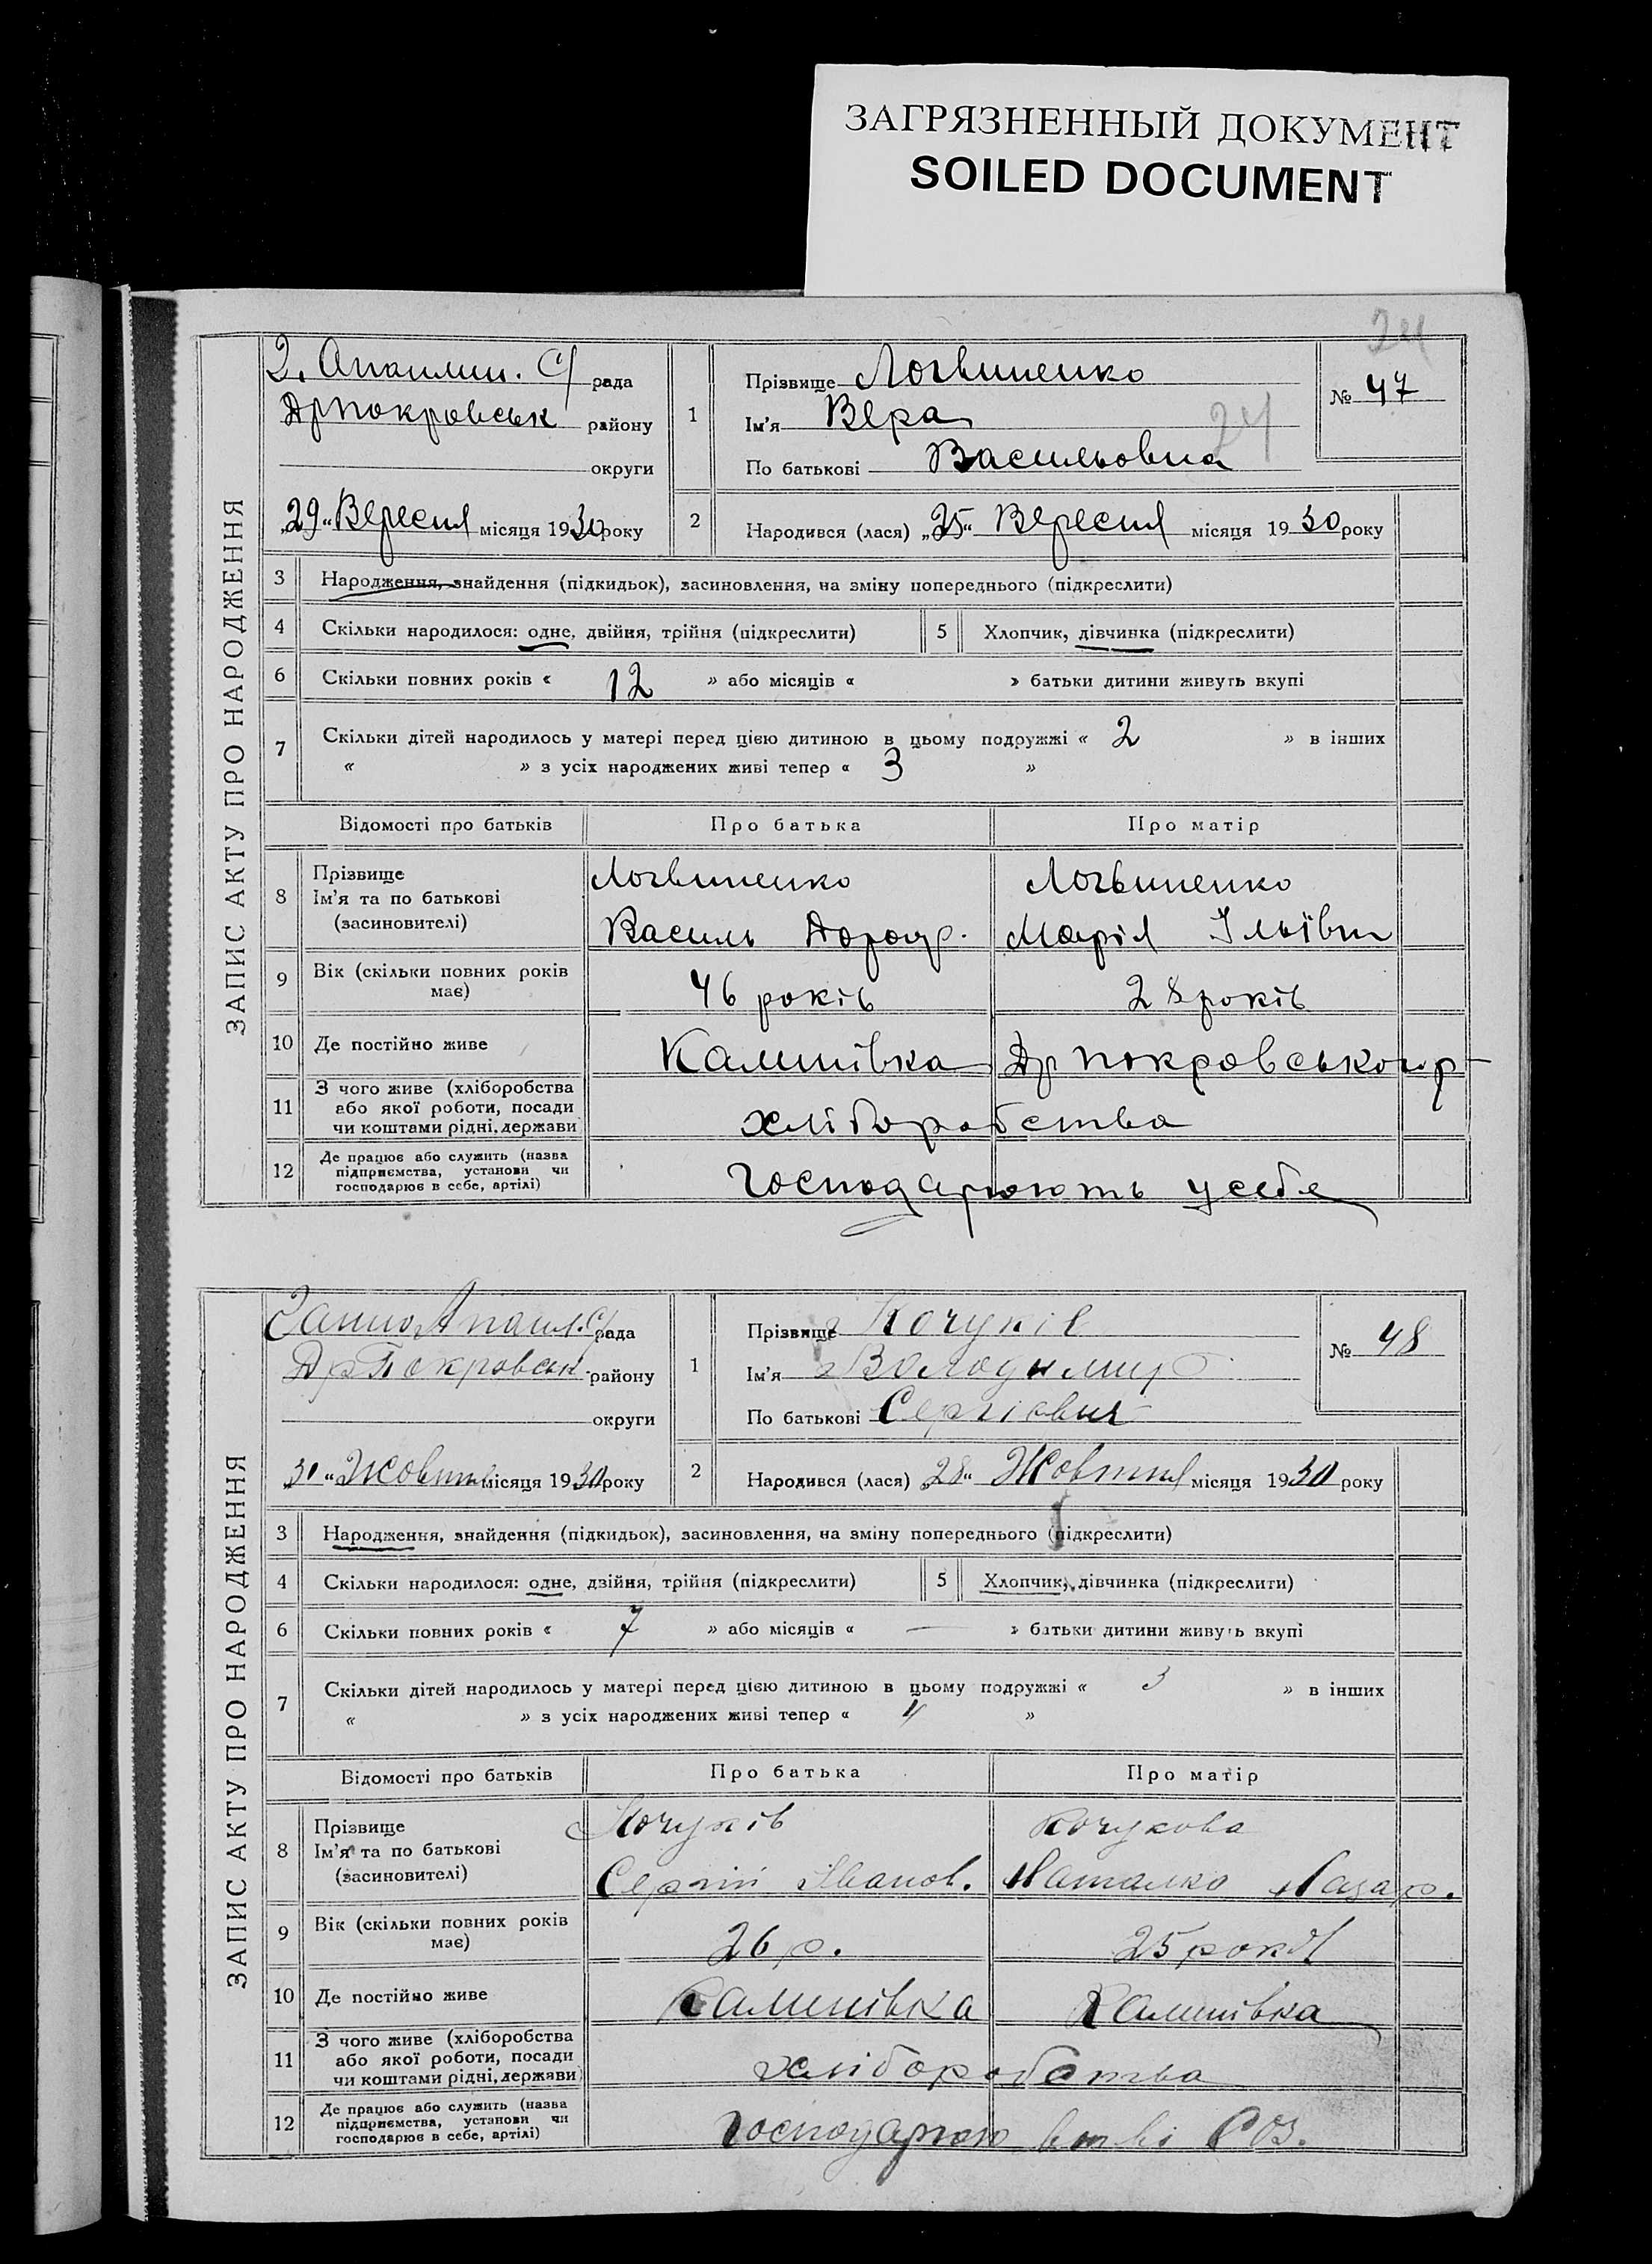 ЗАГРЯЗНЕННЫЙ ДОКУМЕНТ
SOILED DOCUMENT
24
ЗАПИС АКТУ ПРО НАРОДЖЕННЯ
рада
Дрпокровськ району
округи
„29“ Вересня місяця 1930 року
1
Прізвище Логвиненко
Ім'я Вера
По батькові Васильовна
24
№ 47
2
Народився (лася) „25“ Вересня місяця 1930 року
3 Народження, знайдення (підкидьок), засиновлення, на зміну попереднього (підкреслити)
4 Скільки народилося: одне, двійня, трійня (підкреслити) 5 Хлопчик, дівчинка (підкреслити)
6 Скільки повних років « 12 » або місяців « » батьки дитини живуть вкупі
7 Скільки дітей народилось у матері перед цією дитиною в цьому подружжі « 2 » в інших
« » з усіх народжених живі тепер « 3 »
Відомості про батьків Про батька Про матір
8 Прізвище
Ім'я та по батькові
(засиновителі)
Логвиненко
Василь
Логвиненко
Марія Ільївн
9 Вік (скільки повних років має) 46 років 28 років
10 Де постійно живе Калинівка Др покровського р
11 З чого живе (хліборобства
або якої роботи, посади
чи коштами рідні, держави
хліборобства
12 Де працює або служить (назва
підприємства, установи чи
господарює в себе, артілі)
Господарюють у себе
ЗАПИС АКТУ ПРО НАРОДЖЕННЯ
рада
Др Покровськ. району
округи
„30“ Жовтня місяця 1930 року
1
Прізвище Кочуків
Ім'я Володимир
По батькові Сергієвич
№ 48
2
Народився (лася) „28“ Жовтня місяця 1930 року
3 Народження, знайдення (підкидьок), засиновлення, на зміну попереднього (підкреслити)
4 Скільки народилося: одне, двійня, трійня (підкреслити) 5 Хлопчик, дівчинка (підкреслити)
6 Скільки повних років « 7 » або місяців « — » батьки дитини живуть вкупі
7 Скільки дітей народилось у матері перед цією дитиною в цьому подружжі « 3 » в інших
« » з усіх народжених живі тепер « 4 »
Відомості про батьків Про батька Про матір
8 Прізвище
Ім'я та по батькові
(засиновителі)
Кочуків
Сергій Іванов.
Кочукова
Наталка Назар.
9 Вік (скільки повних років має) 26 р. 25 років
10 Де постійно живе Калинівка Калинівка
11 З чого живе (хліборобства
або якої роботи, посади
чи коштами рідні, держави
хліборобства
12 Де працює або служить (назва
підприємства, установи чи
господарює в себе, артілі)
СОЗ.